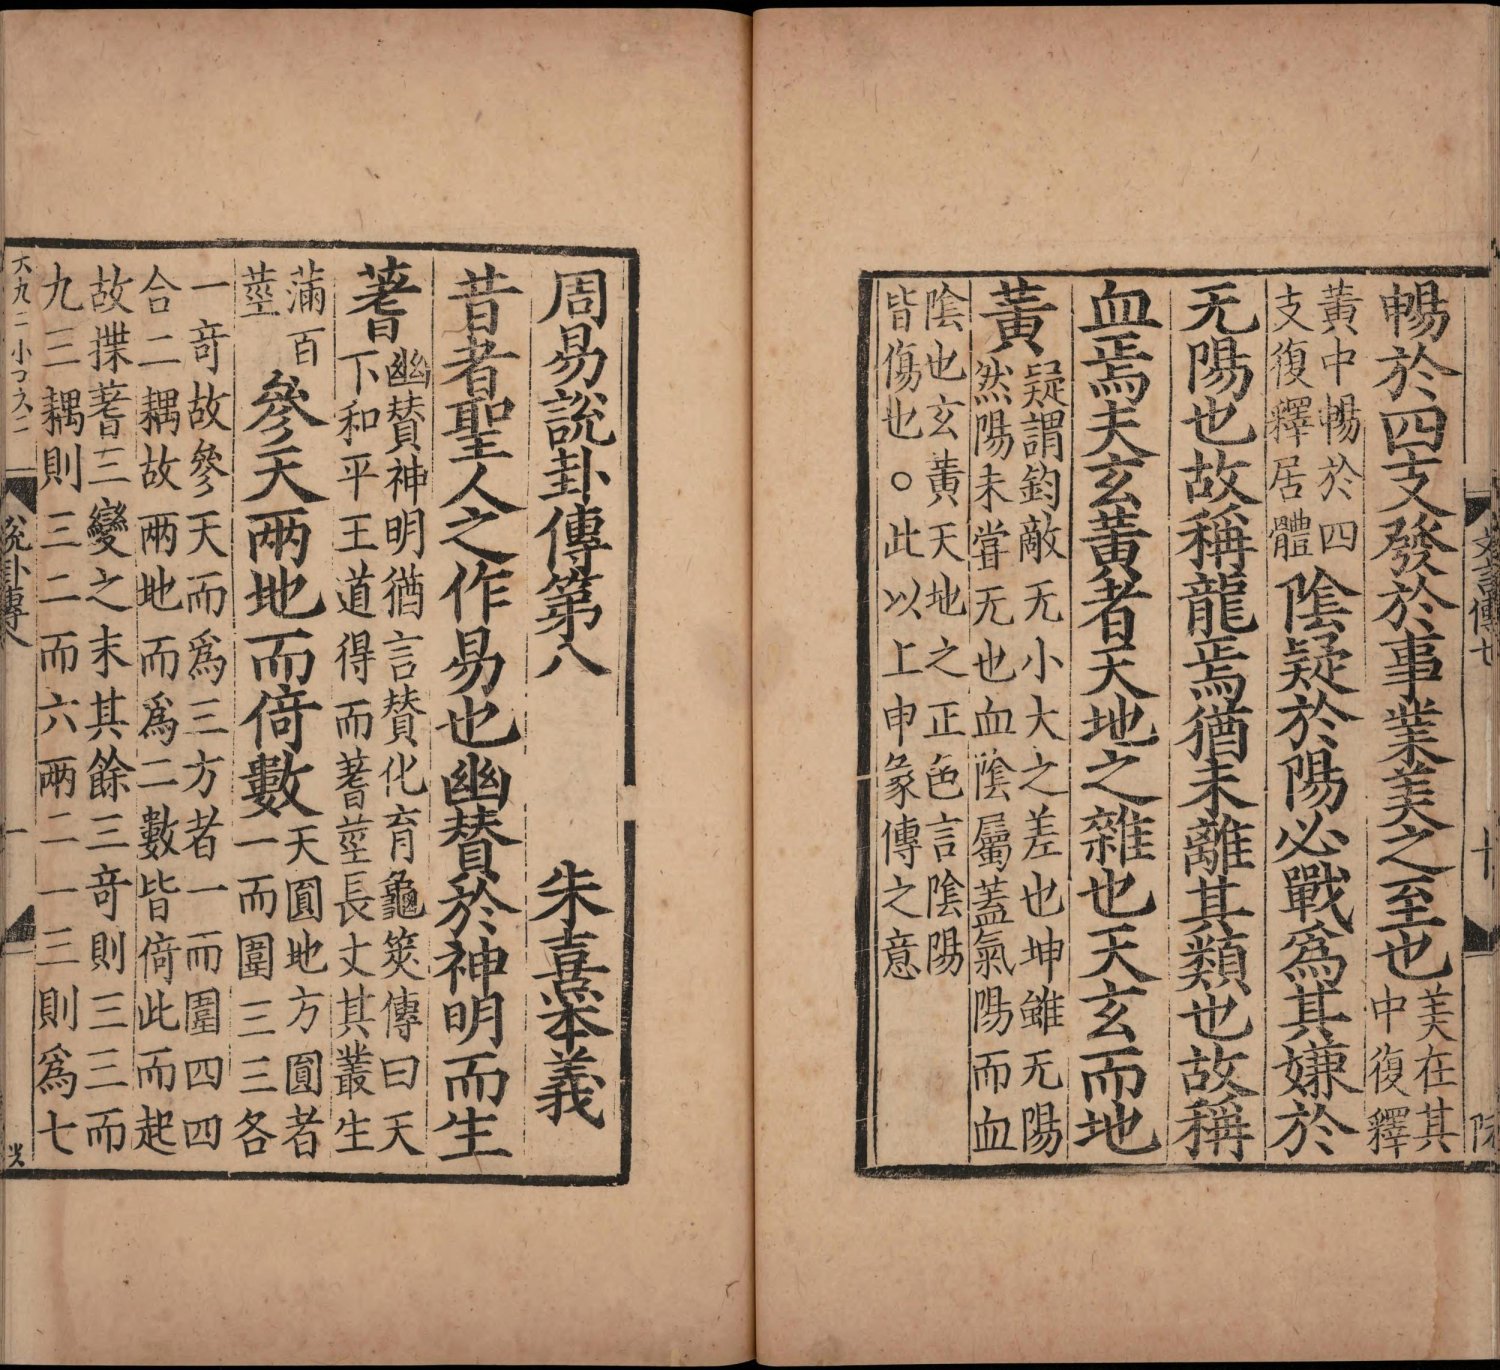 暢於四支發於事業美之至也美在其中復釋
黃中暢於四支復釋居體陰疑於陽必戰爲其嫌於
无陽也故稱龍焉猶未離其類也故稱
血焉夫玄黃者天地之雜也天玄而地
黃疑謂鈞敵无小大之差也坤雖无陽然陽未嘗无也血陰屬蓋氣陽而血
陰也玄黃天地之正色言陰陽皆傷也○此以上申彖傳之意
周易說卦傳第八　朱熹本義
昔者聖人之作易也幽贊於神明而生
蓍幽贊神明猶言贊化育龜筴傳曰天下和平王道得而蓍莖長丈其叢生
滿百莖參天兩地而倚數天圓地方圓者一而圍三三各
一奇故參天而爲三方者一而圍四四合二耦故兩地而爲二數皆倚此而起
故揲蓍三變之末其餘三奇則三三而九三耦則三二而六兩二一三則爲七
說卦傳八
一